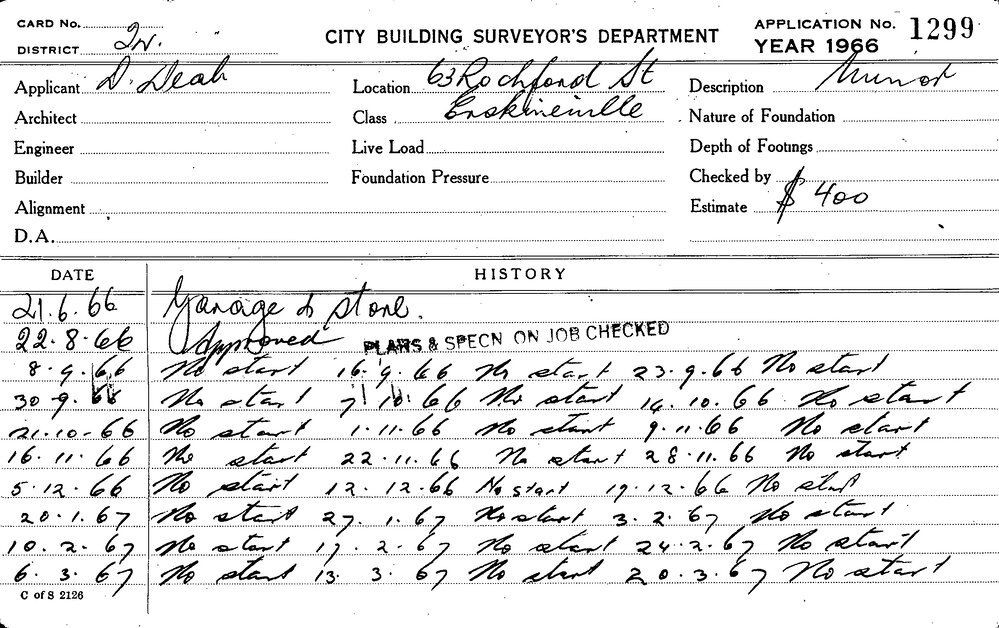 CARD No.
DISTRICT
CITY BUILDING SURVEYOR'S DEPARTMENT
APPLICATION No. 1299
YEAR 1966
Applicant D. Deah Location 63 Rochford St Description Minor
Architect Class Erskineville Nature of Foundation
Engineer Live Load Depth of Footings
Builder Foundation Pressure Checked by
Alignment Estimate $ 400
D.A.
DATE HISTORY
21.6.66 Garage & Store.
22.8.66 Approved PLANS & SPECN ON JOB CHECKED
8.9.66 No start 16.9.66 No start 23.9.66 No start
30.9.66 No start 7.10.66 No start 14.10.66 No start
21.10.66 No start 1.11.66 No start 9.11.66 No start
16.11.66 No start 22.11.66 No start 28.11.66 No start
5.12.66 No start 12.12.66 No start 19.12.66 No start
20.1.67 No start 27.1.67 No start 3.2.67 No start
10.2.67 No start 17.2.67 No start 24.2.67 No start
6.3.67 No start 13.3.67 No start 20.3.67 No start
C of S 2126